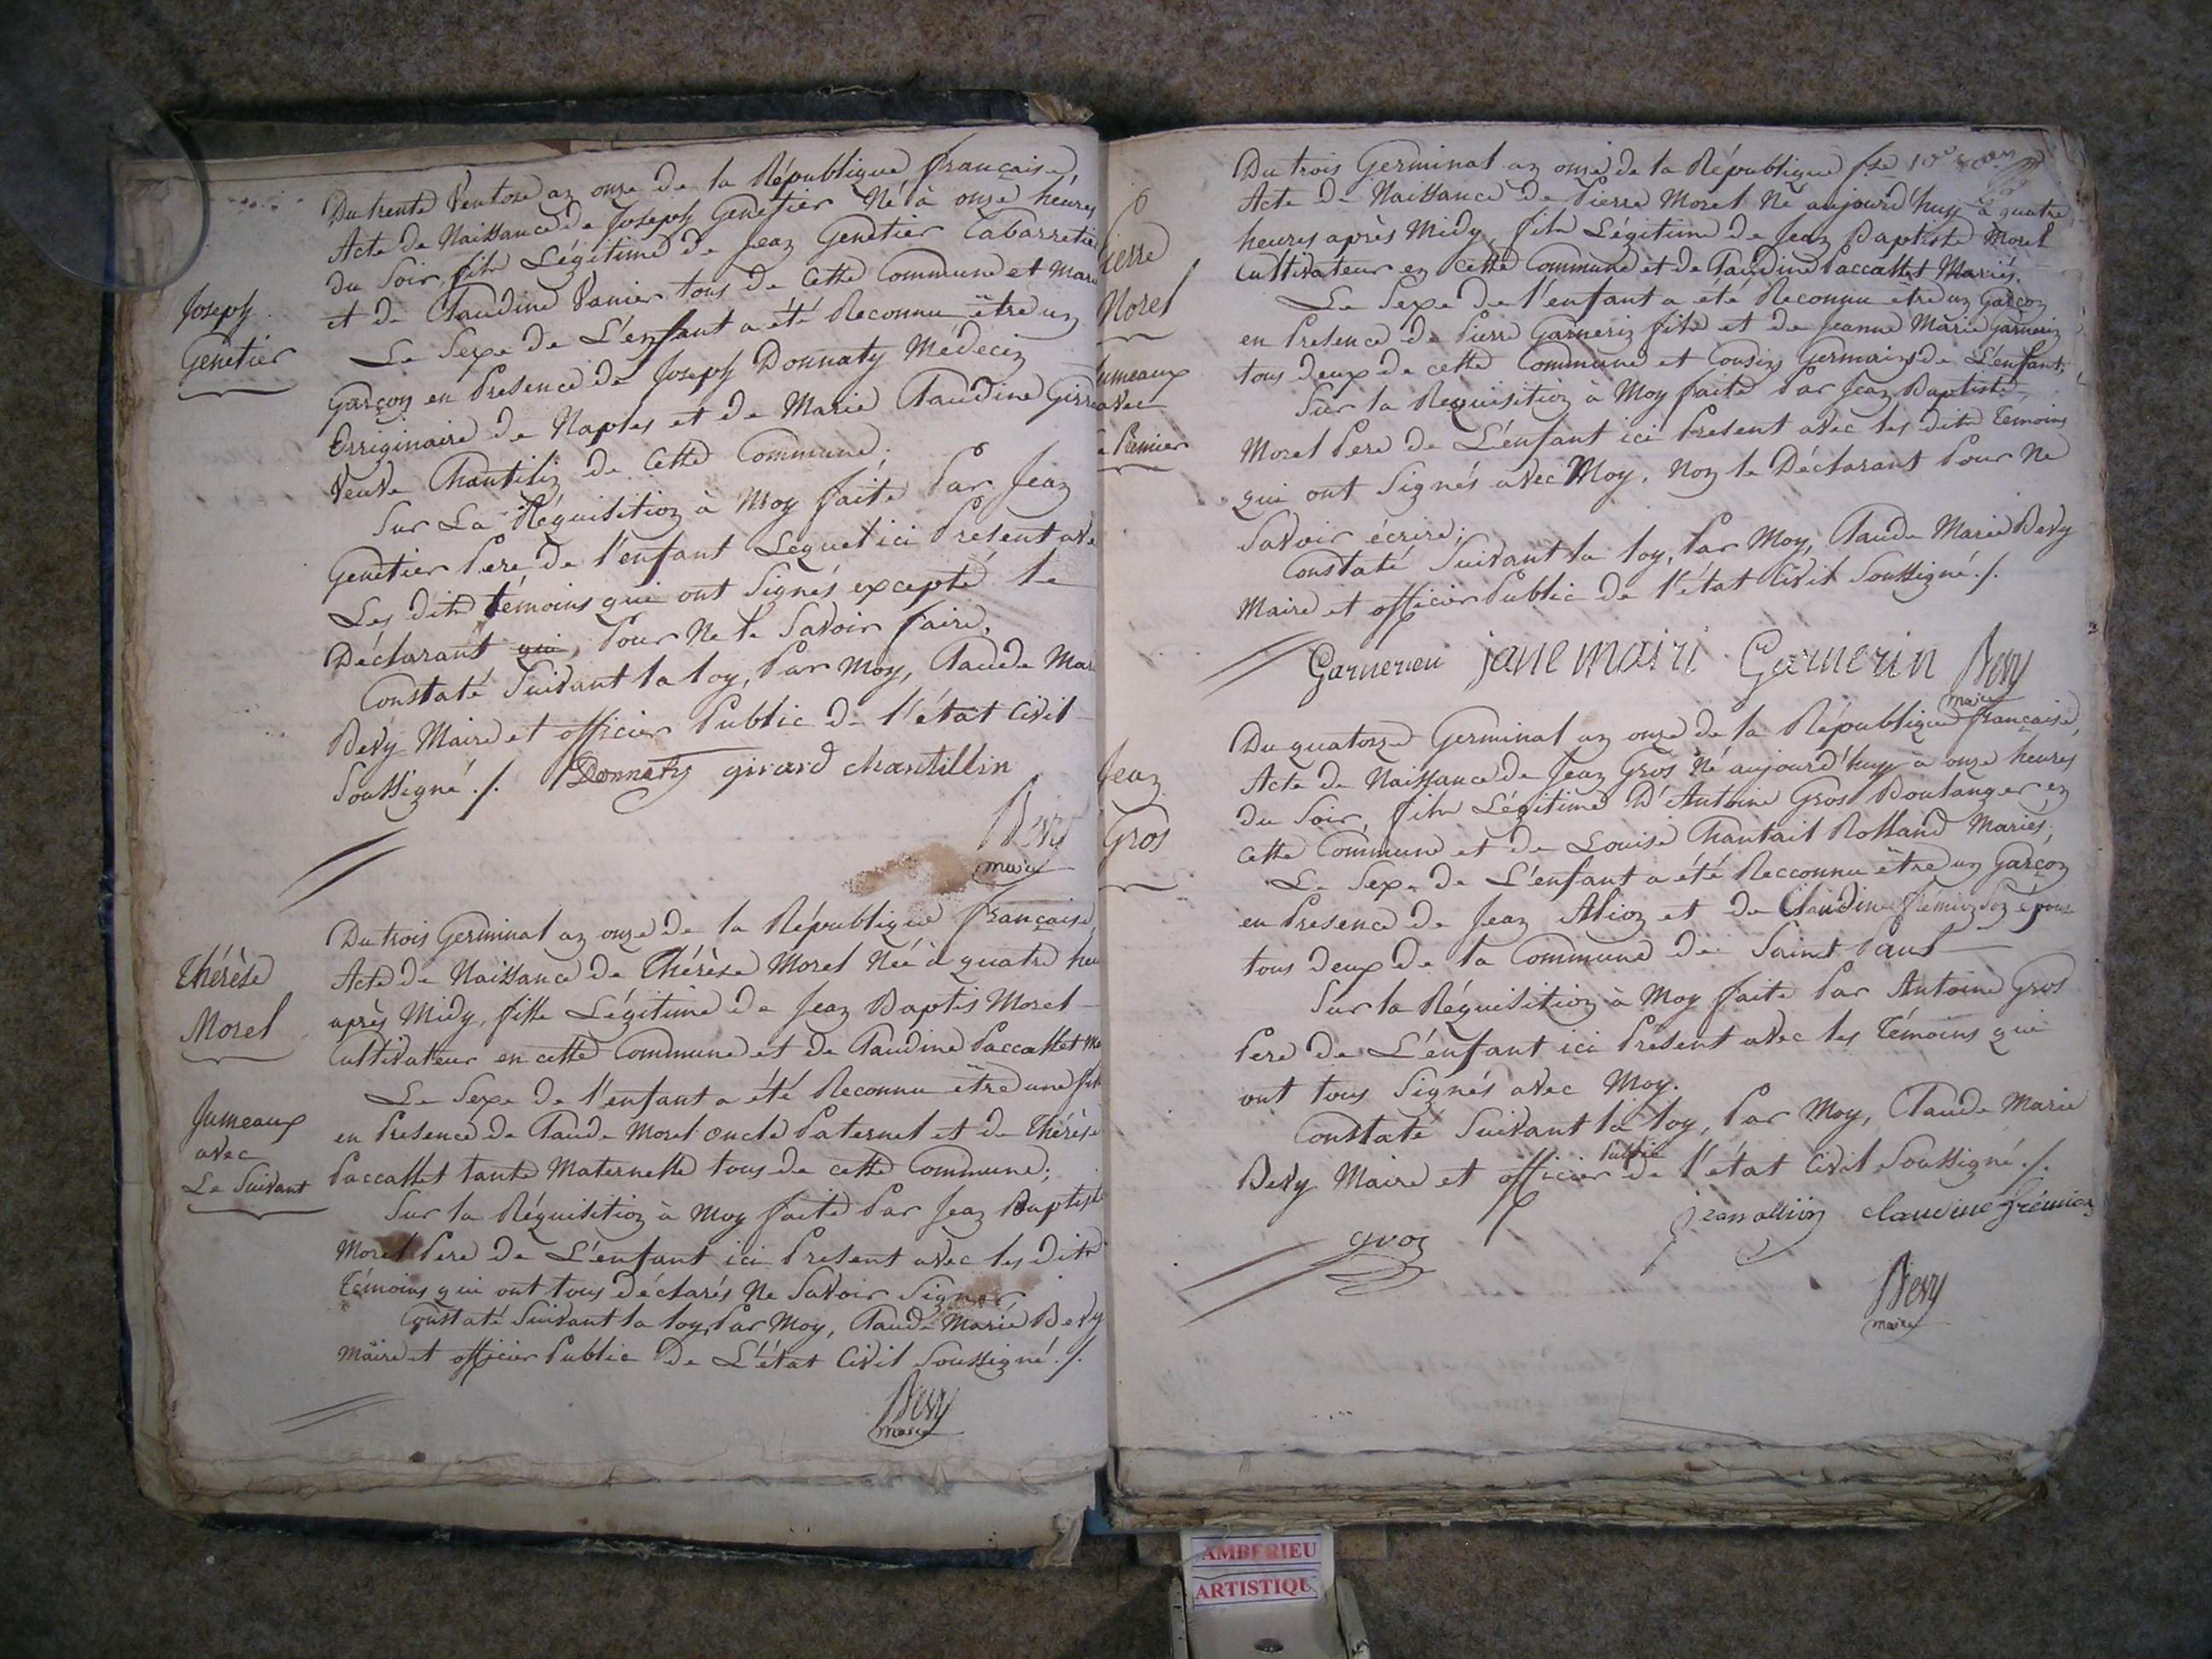 Du trente Ventose an onze de la République française,
Acte de Naissance de Joseph Genetier Né à onze heures
du Soir, fils Légitime de Jean Genetier Cabarretier
et de Claudine Vanier tous de Cette Commune et Mari
Joseph
Genetier
Le Sexe de L'enfant a été Reconnu être un
Garçon en Presence de Joseph Donnaty Médecin
Orriginaire de Naples et de Marie Claudine Girr
Veuve Chantilin de Cette Commune;
Sur La Réquisition à Moy faite Par Jean
Genetier Pere de l'enfant Lequel ici Présent ave
Les dits témoins qui ont Signés excepté le
Déclarant qui, Pour Ne le Savoir faire.
Constaté Suivant la loy, Par Moy, Claude Mar
Bevy Maire et officier Public de l'état Civil
Soussigné ./. Donnaty girard chantillin
Bevy
maire
Du trois Germinal an onze de la République française,
Acte de Naissance de Thérèse Morel Née à quatre heu
après Midy, fille Légitime de Jean Baptis Morel
Cultivateur en cette Commune et de Claudine Paccallet Ma
Thérèse
Morel
Jumeaux
avec
Le Suivant
Le Sexe de l'enfant a été Reconnu être une fill
en Presence de Claude Morel oncle Paternel et de Thérèse
Paccallet tante Maternelle tous de cette Commune;
Sur la Réquisition à Moy faite Par Jean Baptiste
Morel Pere de L'enfant ici Présent avec les dits
Témoins qui ont tous Déclarés Ne Savoir Signer
Constaté Suivant la loy, Par Moy, Claude Marie Bevy
Maire et officier Public de L'état Civil Soussigné ./.
Bevy
maire
Du trois Germinal an onze de la République fse
Acte de Naissance de Pierre Morel Né aujourd'huy à quatre
heures après Midy, fils Légitime de Jean Baptiste Morel
Cultivateur en Cette Commune et de Claudine Paccallet Mariés.
ierre
Morel
umeaux
avec
Premier
Le Sexe de l'enfant a été Reconnu être un Garçon
en Presence de Pierre Garnerin fils et de Jeanne Marie Garnerin
tous deux de cette Commune et Cousins Germains de L'enfant;
Sur la Requisition à Moy faite Par Jean Baptiste
Morel Pere de L'enfant ici Présent avec les dits Temoins
qui ont Signés avec Moy, Non le Déclarant Pour Ne
Savoir écrire;
Constaté Suivant la loy, Par Moy, Claude Marie Bevy
Maire et officier Public de l'état Civil Soussigné ./.
Garnerien jane mairi Garnerin Bevy
maire
Du quatorze Germinal an onze de la République française,
Acte de Naissance de Jean Gros Né aujourd'huy à onze heures
du Soir, fils Légitime D'Antoine Gros Boulanger en
Cette Commune et de Louise Chantail Rolland Mariés;
Jean
Gros
Le Sexe de L'enfant a été Recconnu être un Garçon
en Presence de Jean Alion et de Claudine frémion Son épouse
tous deux de la Commune de Saint Paul
Sur la Réquisition à Moy faite Par Antoine Gros
Pere de L'enfant ici Présent avec les Témoins qui
ont tous Signés avec Moy.
Constaté Suivant la loy, Par Moy, Claude Marie
Bevy Maire et officier Public de l'état Civil Soussigné ./.
gros jean allion claudine frémion
Bevy
maire
AMBERIEU
ARTISTIQU